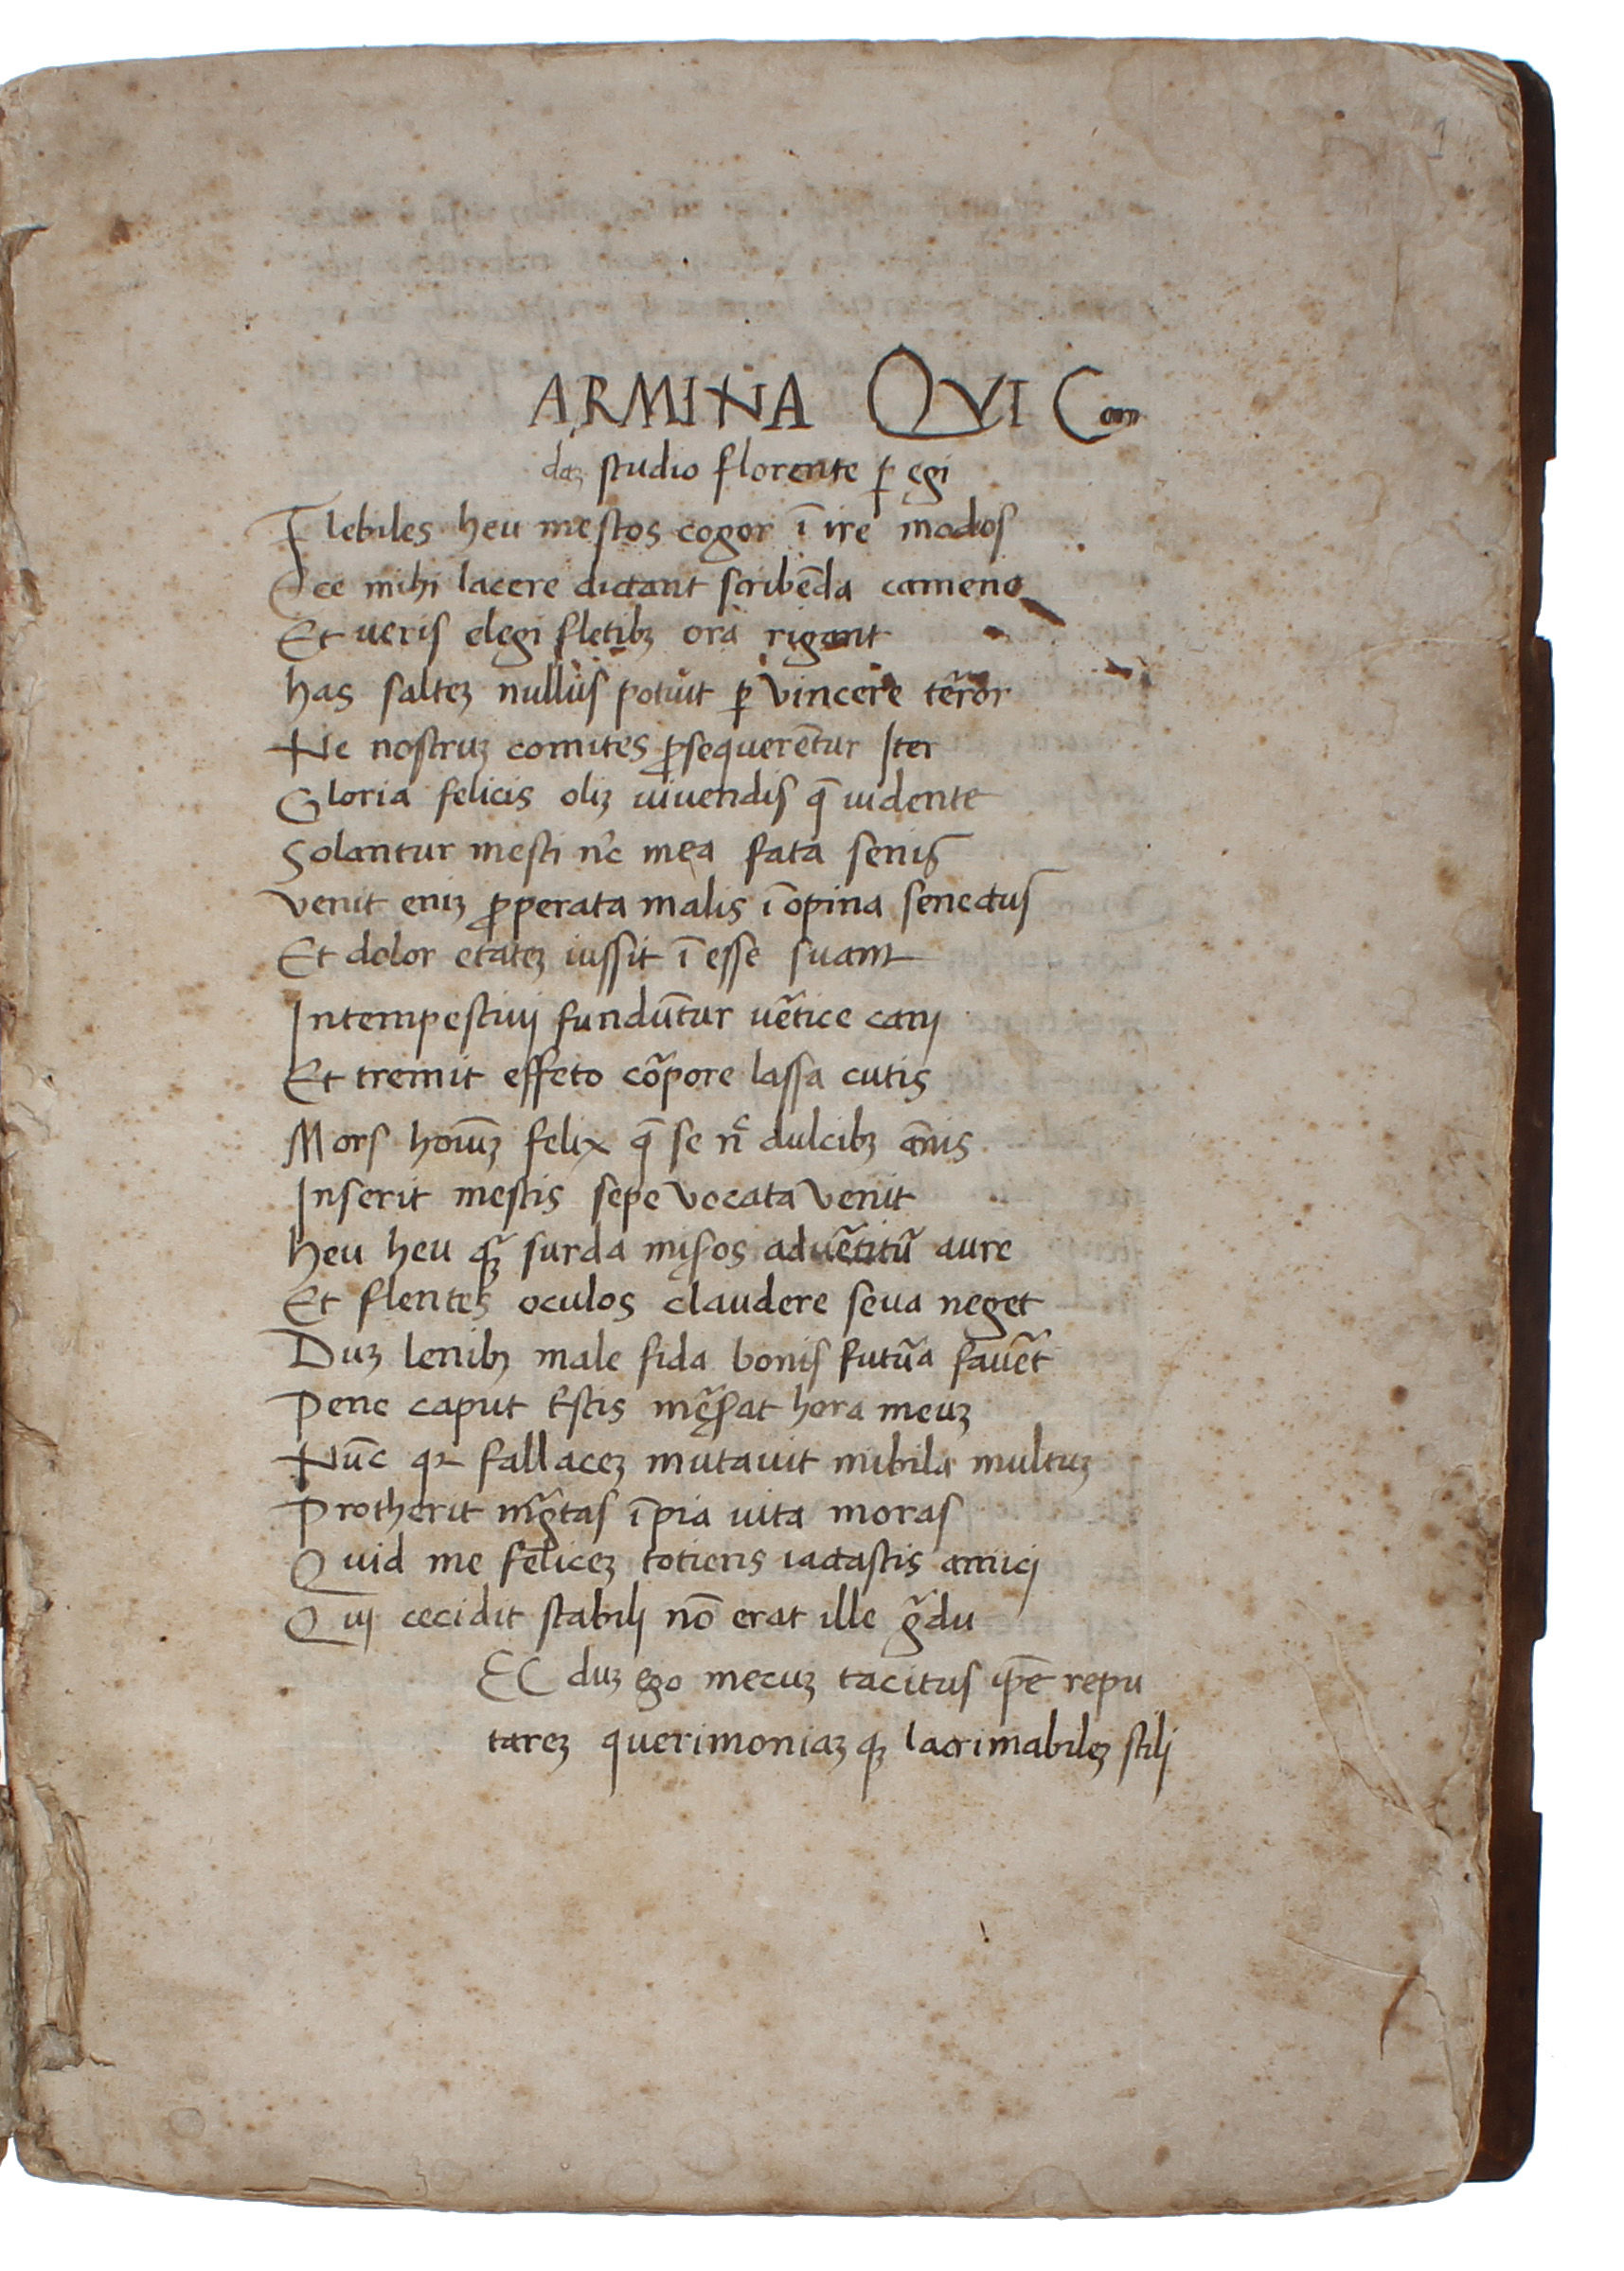 1
ARMINA QVI Con
daȝ studio florente ꝑ ęgi
Flebiles heu mestos cogor ī ire modos
Ecce mihi lacere dictant scribēda camene
Et ueris elegi fletibȝ ora rigant
has salteȝ nullus potuit ꝑ vincere ter̃or
Ne nostruȝ comites ꝓsequerēt̄ur Iter
Gloria felicis oliȝ uiuendis q̄ uidente
Solantur mesti nc̄ mea fata senis
venit eniȝ ꝓperata malis ī opina senectus
Et dolor etateȝ iussit ī esse suam
Intempestiuij fundūtur uẽtice canj
Et tremit effeto cõpore lassa cutis
Mors hoīuȝ felix q̄ se n̄ dulcibȝ ānis
Inserit mestis sepe vocata venit
heu heu qȝ̃ surda mis̨os aduẽtitũ aure
Et flentes oculos claudere seua neget
Duȝ lenibȝ male fida bonis futũa fauẽt
Pene caput tstis męs̃at hora meuȝ
Nūc qꝛ fallaceȝ mutauit nubila multuȝ
Protherit ing̃tas īpia uita moras
Quid me feliceȝ totiens iactastis amicj
Quij cecidit stabilj nō erat ille g̃du
EC duȝ ego mecuȝ tacitus ip̄e repu
tareȝ querimoniaȝ qȝ lacrimabileȝ stilj